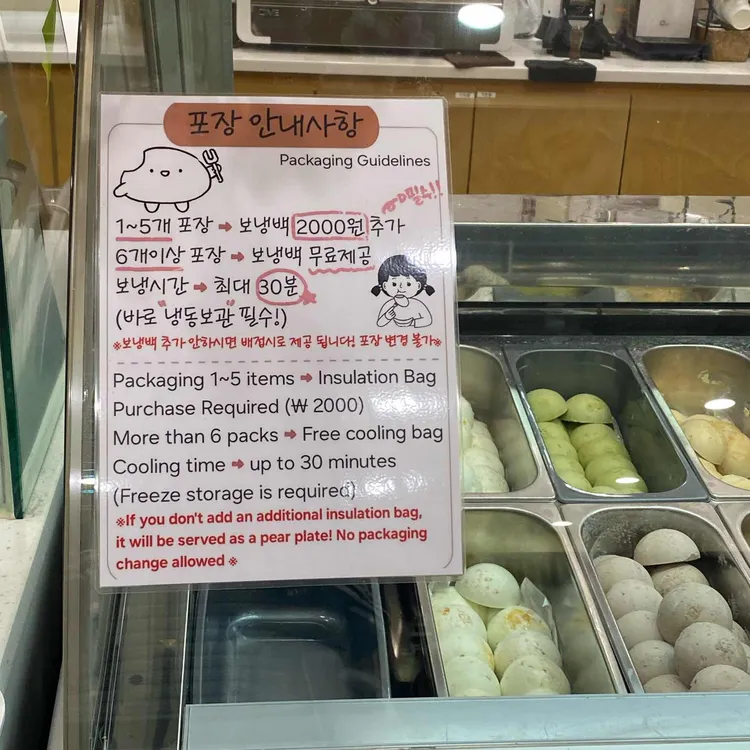 포장 안내사항
Packaging Guidelines
필수!!
1~5개 포장 ➡ 보냉백 2000원 추가
6개이상 포장 ➡ 보냉백 무료제공
보냉시간 ➡ 최대 30분
(바로 "냉동보관" 필수!)
※보냉백 추가 안하시면 배접시로 제공 됩니다! 포장 변경 불가※
Packaging 1~5 items ➡ Insulation Bag
Purchase Required (₩ 2000)
More than 6 packs ➡ Free cooling bag
Cooling time ➡ up to 30 minutes
(Freeze storage is required)
※If you don't add an additional insulation bag,
it will be served as a pear plate! No packaging
change allowed ※